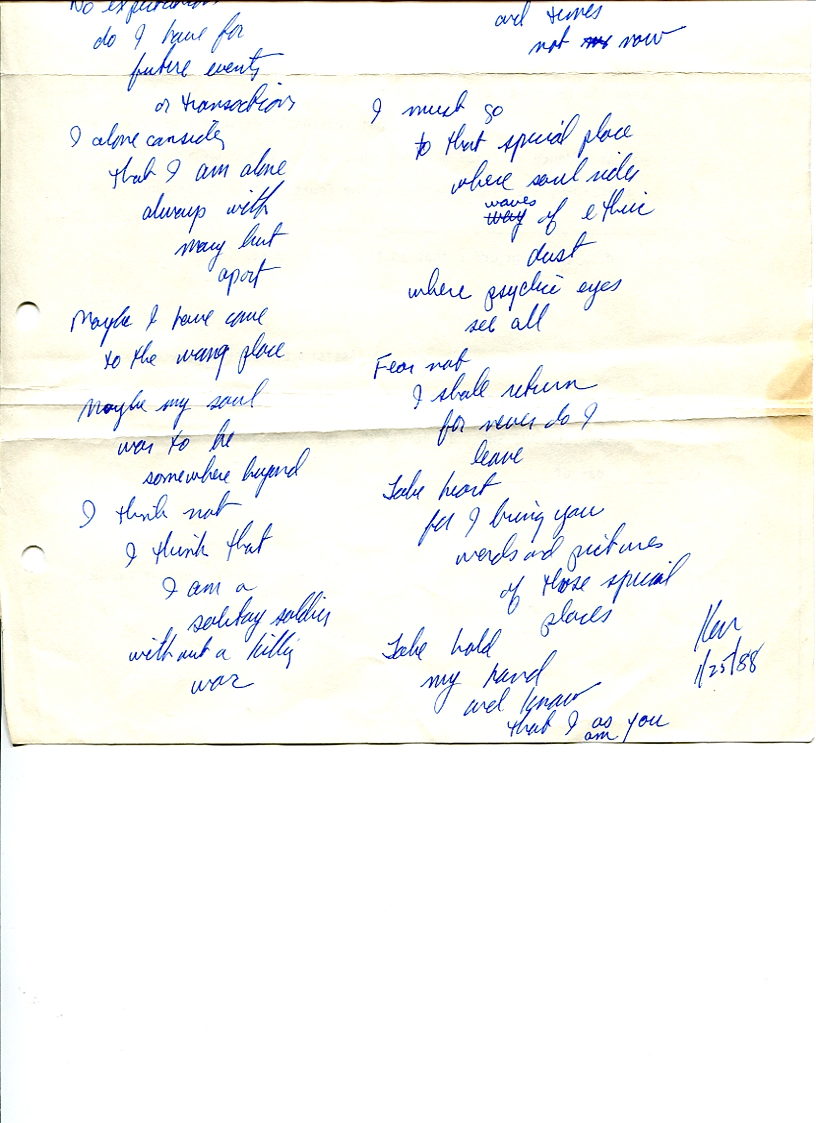 No expectations
do I have for
future events
or transactions
I alone consider
that I am alone
always with
many but
apart
Maybe I have come
to the wrong place
Maybe my soul
was to be
somewhere beyond
I think not
I think that
I am a
solitary soldier
without a killing
war
and times
not now
I must go
to that special place
where soul rides
waves
way of ethric
dust
where psychic eyes
see all
Fear not
I shall return
for never do I
leave
Take heart
for I bring you
words and pictures
of those special
places
Take hold
my hand
and know
that I am as you
Ken
1/25/88